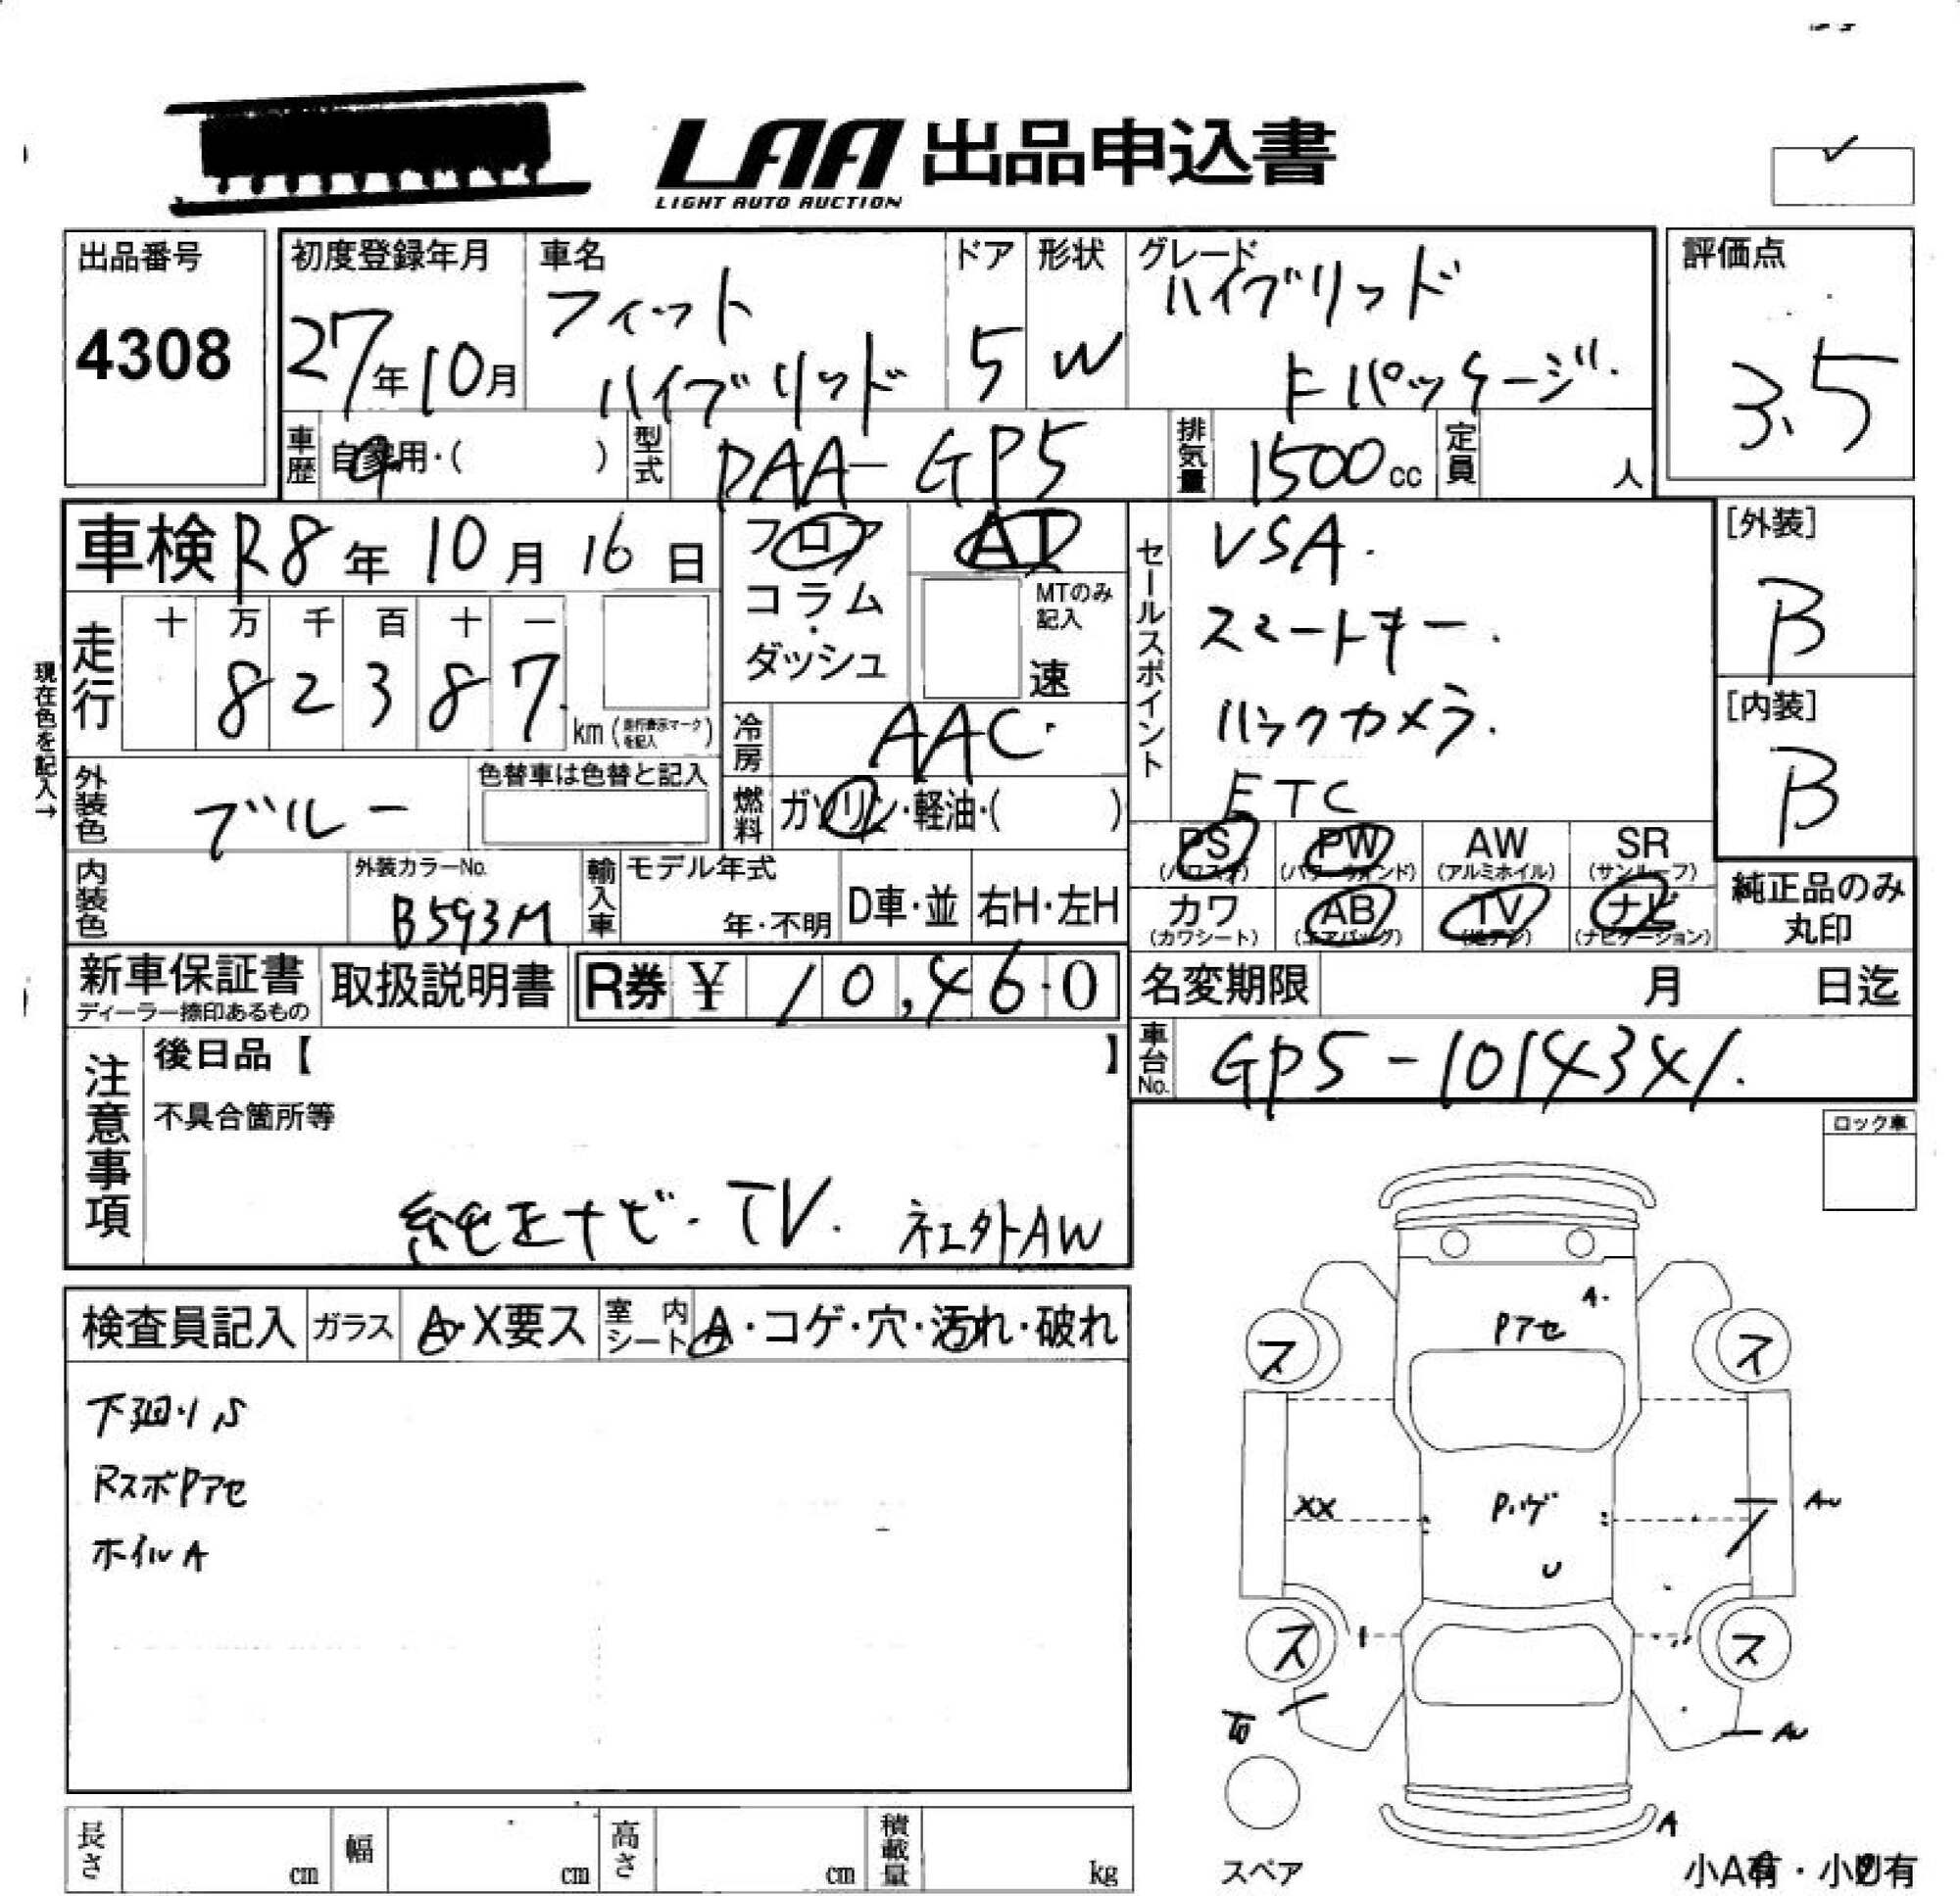 LAA 出品申込書
LIGHT AUTO AUCTION
出品番号
4308
初度登録年月
27年10月
車名
フィット
ハイブリッド
ドア
5
形状
W
グレード
ハイブリッド
Fパッケージ
評価点
3.5
車歴
自家用・( )
型式
DAA-GP5
排気量
1500cc
定員
人
車検 R8年10月16日
フロア
コラム
・
ダッシュ
AT
MTのみ
記入
速
セールスポイント
VSA.
スマートキー.
バックカメラ.
ETC
[外装]
B
[内装]
B
現在色を記入→
走行
十 万 千 百 十 一
8 2 3 8 7
km(走行表示マークを記入)
冷房
AAC
燃料
ガソリン・軽油・( )
外装色
ブルー
色替車は色替と記入
内装色
外装カラーNo.
B593M
輸入車
モデル年式
年・不明
D車・並
右H・左H
PS
(パワステ)
PW
(パワーウインド)
AW
(アルミホイル)
SR
(サンルーフ)
カワ
(カワシート)
AB
(エアバッグ)
TV
(地デジ)
ナビ
(ナビゲーション)
純正品のみ
丸印
新車保証書
ディーラー捺印あるもの
取扱説明書
R券 ¥ 10,460
名変期限
月 日迄
車台No.
GP5-1014341.
注意事項
後日品【 】
不具合箇所等
純正ナビ・TV. 社外AW
ロック車
検査員記入
ガラス
A・X要ス
室内シート
A・コゲ・穴・汚れ・破れ
下廻りS
RスポPアセ
ホイルA
A
Pアセ
ス
ス
XX
Pハゲ
U
AU
ス
ス
AU
A
スペア
小A有・小U有
長さ
cm
幅
cm
高さ
cm
積載量
kg